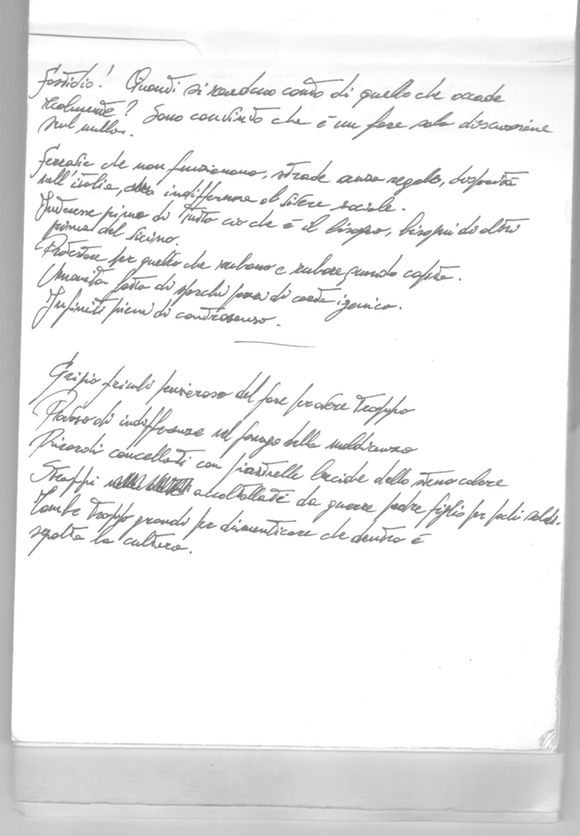 Fastidio! Quanti si rendono conto di quello che accade
realmente? Sono convinto che è un fare solo discussione
sul nulla.
Ferrate che non funzionano, strade senza regole, disparità
sull'italia, indifferenza al sociale.
Interesse prima di tutto ciò che è il bisogno, bisogni di altri
prima del vicino.
Protestare per quello che rubano e rubare quando capita.
Umanità fatta di sporchi pezzi di carta igienica.
Infiniti pieni di controsenso.
Grigio friuli pensieroso del fare per dare troppo
di indifferenza nel della maldicenza
Ricordi cancellati con piastrelle lucide dello stesso colore
Strappi accoltellati da guerre padre figlio per pochi soldi.
Tombe troppo grandi per dimenticare che dentro è
sepolta la cultura.